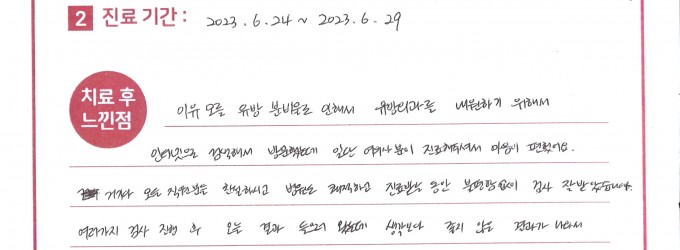 2 진료 기간 : 2023. 6. 24 ~ 2023. 6. 29
치료 후
느낀점
이유 모를 유방 분비물로 인해서 유방외과를 내원하기 위해서
인터넷으로 검색해서 방문했는데 일단 여의사분이 진료해주셔서 마음이 편했어요.
모든 직원분들 친절하시고 병원도 쾌적하고 진료받는 동안 불편함없이 검사 잘 받았습니다.
여러가지 검사 진행 후 오늘 결과 들으러 왔는데 생각보다 좋지 않은 결과가 나와서